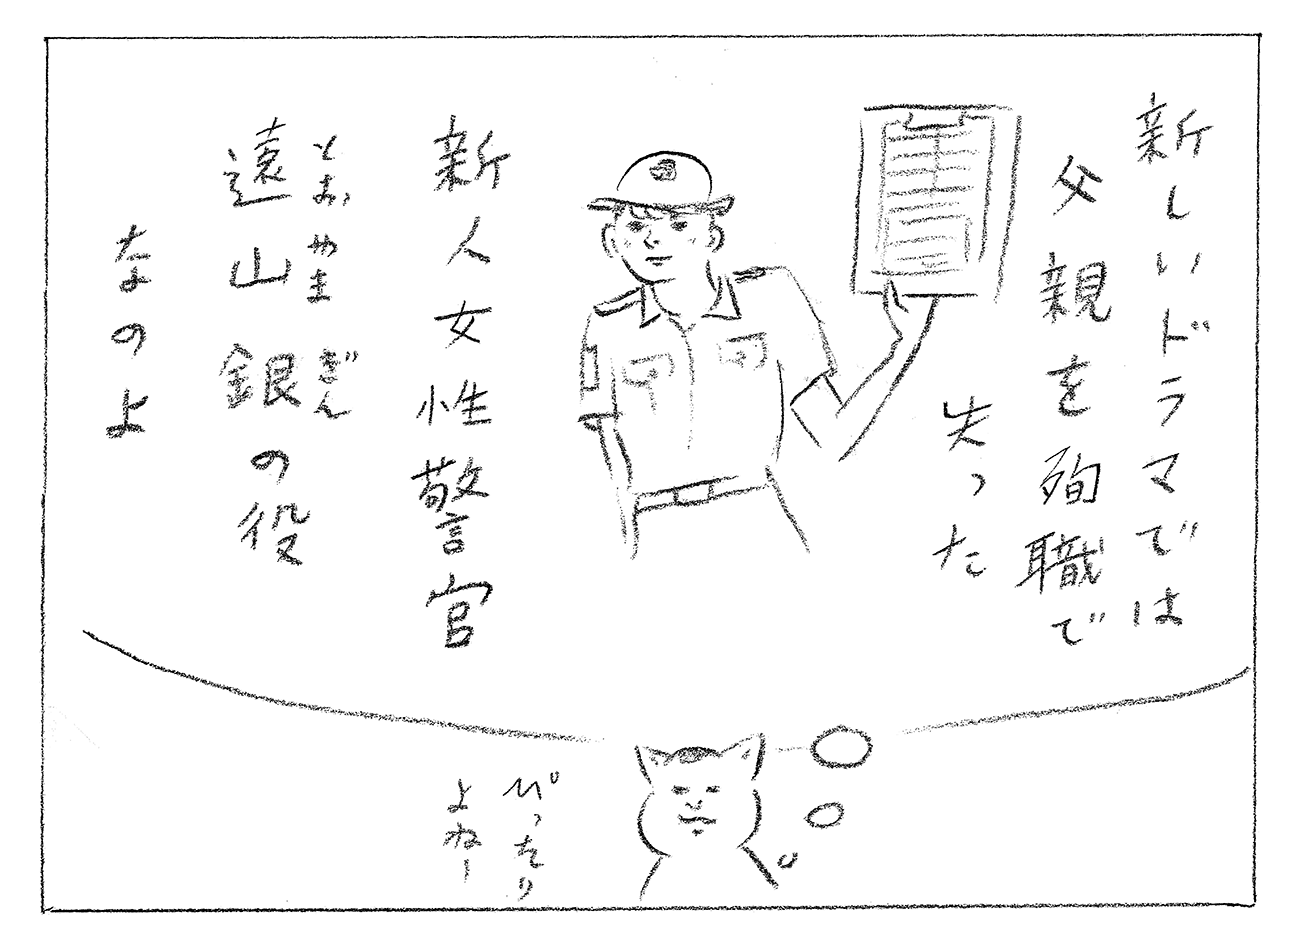 新しいドラマでは
父親を殉職で
失った
新人女性警官
とおやま ぎん
遠山銀の役
なのよ
ぴったり
よねー